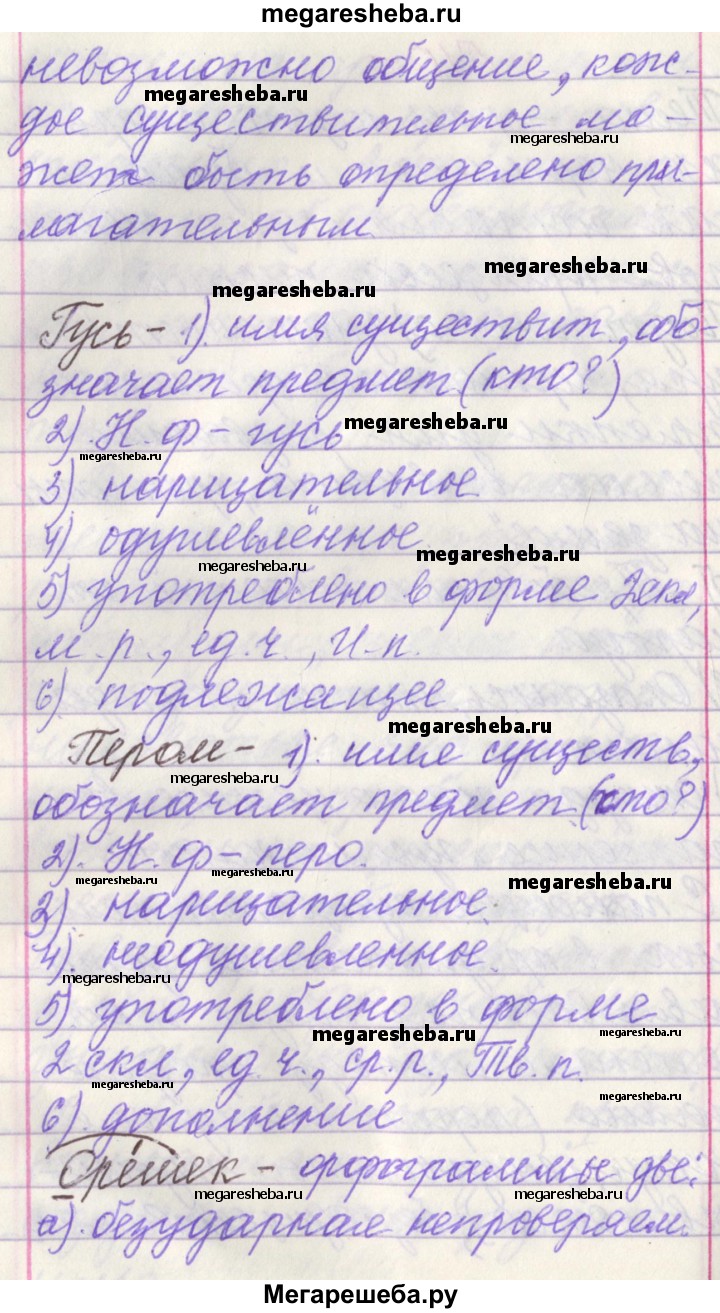 megaresheba.ru
невозможно общение, каж-
megaresheba.ru
дое существительное мо-
megaresheba.ru
жет быть определено при-
лагательным
megaresheba.ru
megaresheba.ru
Гусь - 1). имя существит., обо-
значает предмет (кто?)
2). Н.ф - гусь
megaresheba.ru
megaresheba.ru
3) нарицательное
4) одушевлённое
megaresheba.ru
megaresheba.ru
5) употреблено в форме 2скл,
м.р., ед.ч., И.п.
6). подлежащее
megaresheba.ru
Пером - 1). имя существ,
megaresheba.ru
обозначает предмет (что?)
2). Н.ф - перо.
megaresheba.ru
megaresheba.ru
megaresheba.ru
3) нарицательное
4). неодушевленное
megaresheba.ru
5) употреблено в форме
megaresheba.ru
megaresheba.ru
2 скл, ед.ч., ср.р., Тв.п.
megaresheba.ru
6). дополнение
Орешек - орфограммы две:
megaresheba.ru
megaresheba.ru
а). безударная непроверяем.
Мегарешеба.ру